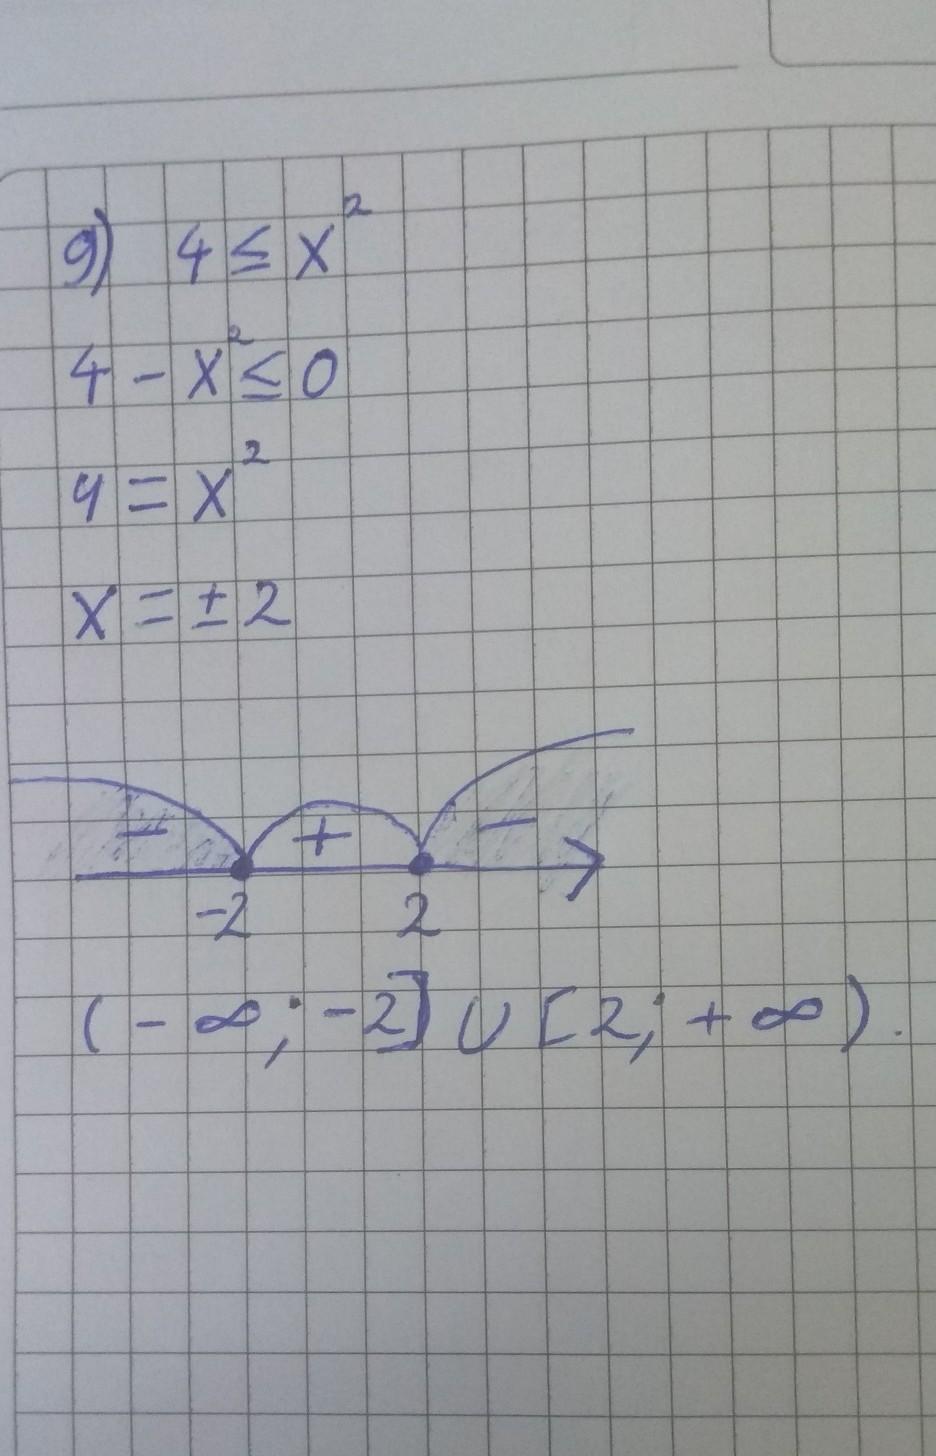 9) 4 ≤ x²
4 - x² ≤ 0
4 = x²
x = ± 2
- + -
-2 2
(- ∞; -2] ∪ [2; + ∞).